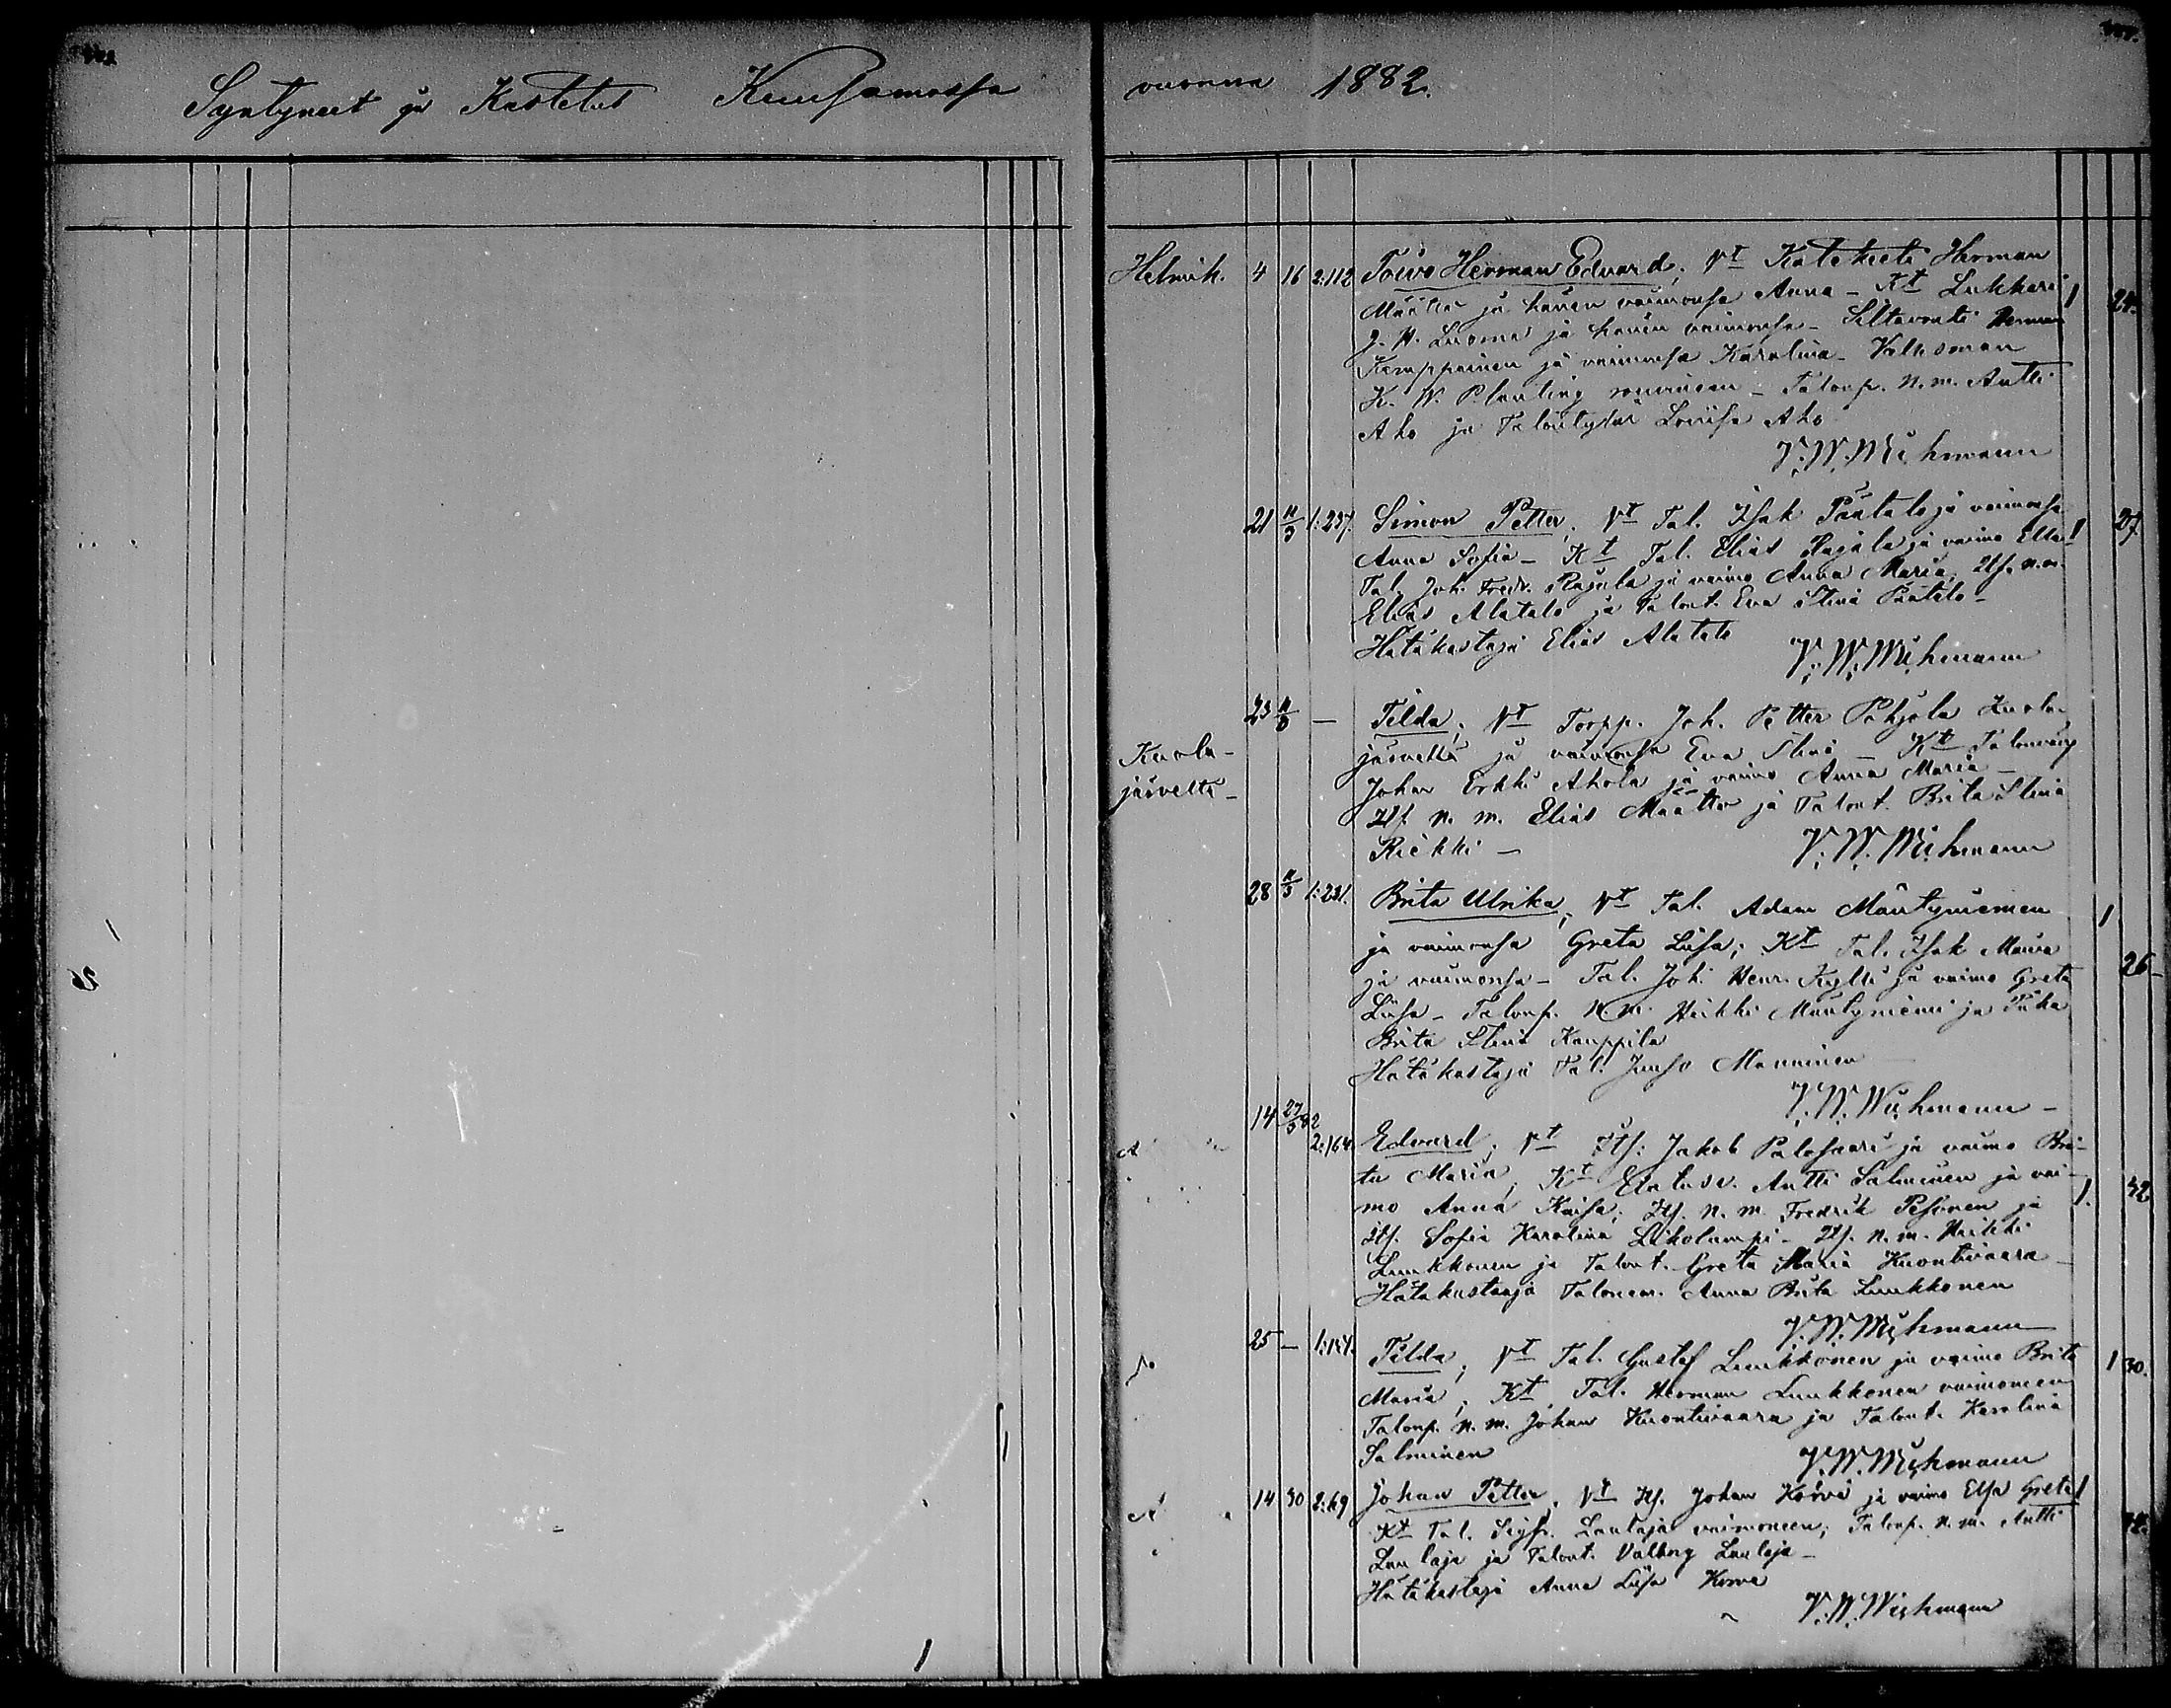 Syntyneet ja Kastetut Kuusamossa vuonna 1882.
Helmik. 4 16 2:112 Toivo Herman Edvard; Vt Katekeeti Herman
Määttä ja hänen vaimonsa Anna – Kt Lukkari 1 24.
J. H. Luoma ja hänen vaimonsa – Siltavouti Herman
Kemppainen ja vaimonsa Karolina – Valtesman
K. W. Planting – Talonp. n. m. Antti
Aho ja Talontytär Lovisa Aho
V. W. Wichmann
21 11/3 1:237. Simon Petter; Vt Tal. Isak Päätalo ja vaimonsa
Anna Sofia – Kt Tal. Elias Rajala ja vaimo Ella 1 27.
Tal. Joh. Fredr. Rajala ja vaimo Anna Maria; Itf. n. m.
Elias Alatalo ja Talont. Eva Stina Päätalo –
Hätäkastaja Elias Alatalo
V. W. Wichmann
23 11/3 – Tilda; Vt Torpp. Joh. Petter Pohjola Kuola-
Kuola- järveltä ja vaimonsa Eva Stina – Kt
järveltä – Johan Erkki Ahola ja vaimo Anna Maria –
Itf. n. m. Elias Määttä ja Talont. Brita Stina
Riekki –
V. W. Wichmann
28 11/3 1:231. Brita Ulrika; Vt Tal. Adam Mäntyniemen 1
ja vaimonsa Greta Liisa; Kt Tal. Isak
ja vaimonsa – Tal. Joh. Henr. ja vaimo Greta 26 –
Liisa – Talonp. n. m. Heikki Mäntyniemi ja Piika
Brita Stina Kauppila
Hätäkastaja Tal. Juho Manninen
V. W. Wichmann –
14 2:164. Edvard; Vt Itf. Jakob Palosaari ja vaimo Bri-
ta Maria; Kt Antti Salminen ja vai-
mo Anna Kaisa; Itf. n. m. Fredrik Pesonen ja 1. 42
Itf. Sofia Karolina – Itf. n. m. Heikki
Luukkonen ja Talont. Greta Maria Kuontivaara –
Hätäkastaaja Talonem. Anna Brita Luukkonen
V. W. Wichmann
25 – Tilda; Vt Tal. Gustaf Luukkonen ja vaimo Brita 1 30.
Maria; Kt Tal. Herman Luukkonen vaimoneen
Talonp. n. m. Johan Kuontivaara ja Talont. Karolina
Salminen
V. W. Wichmann
14 30 2:69 Johan Petter; Vt Itf. Johan Korva ja vaimo Elsa Greta 1
Kt Tal. Sigfr. Lauluja vaimoneen; Talonp. n. m. Antti
Laulaja ja Talont. Valborg Laulaja –
Hätäkastaja Anna Liisa Korva
V. W. Wichmann